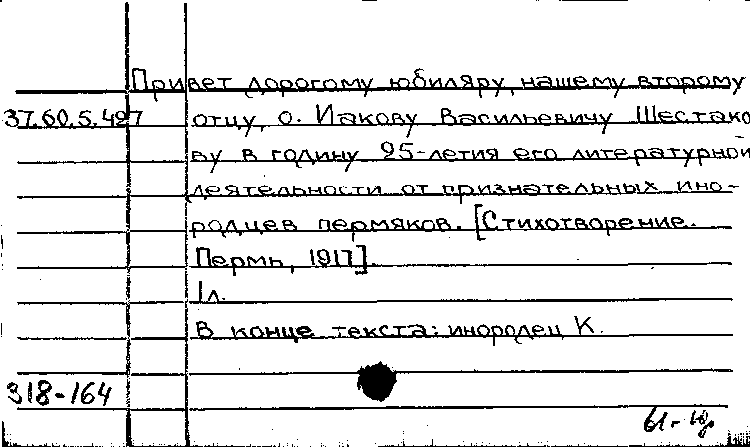 Привет дорогому юбиляру, нашему второму
37.60.5.497 отцу, о. Иакову Васильевичу Шестако
ву в годину 25-летия его литературной
деятельности от признательных ино-
родцев пермяков. [Стихотворение.
Пермь, 1917].
1л.
В конце текста: инородец К.
318-164
61-